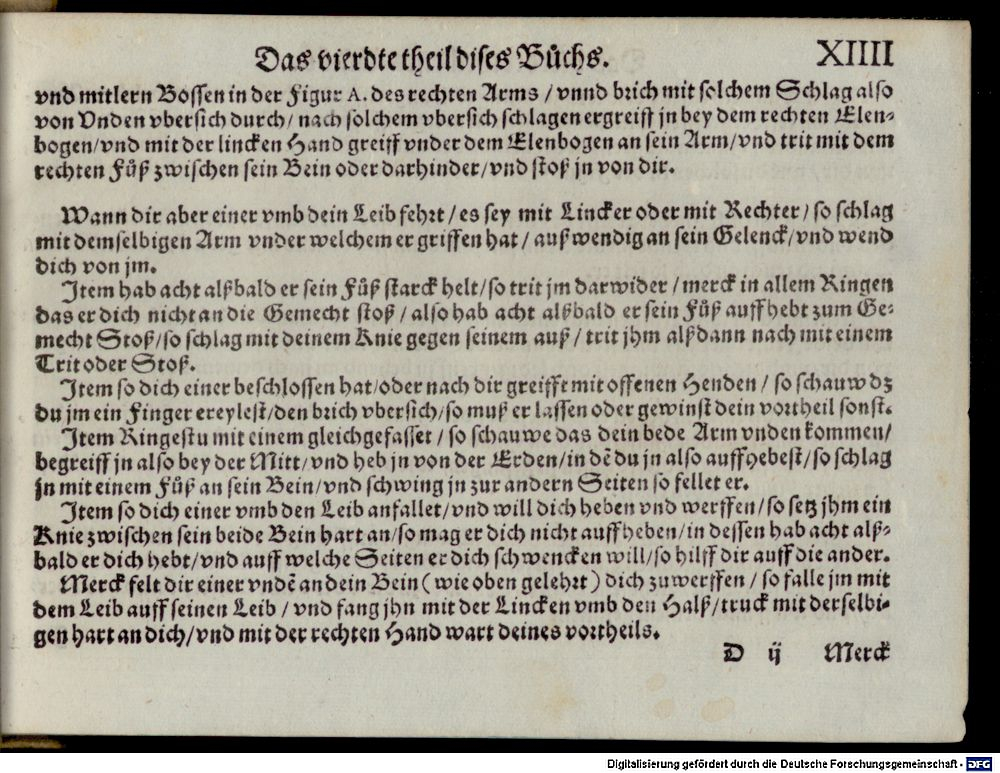 Das vierdte theil dises Bůchs. XIIII
vnd mitlern Bossen in der Figur A. des rechten Arms / vnnd brich mit solchem Schlag also
von Vnden vbersich durch / nach solchem vbersich schlagen ergreiff jn bey dem rechten Elen⸗
bogen / vnd mit der lincken Hand greiff vnder dem Elenbogen an sein Arm / vnd trit mit dem
rechten Fůß zwischen sein Bein oder darhinder / vnd stoß jn von dir.
Wann dir aber einer vmb dein Leib fehrt / es sey mit Lincker oder mit Rechter / so schlag
mit demselbigen Arm vnder welchem er griffen hat / außwendig an sein Gelenck / vnd wend
dich von jm.
Item hab acht alßbald er sein Fůß starck helt / so trit jm darwider / merck in allem Ringen
das er dich nicht an die Gemecht stoß / also hab acht alßbald er sein Fůß auffhebt zum Ge⸗
mecht Stoß / so schlag mit deinem Knie gegen seinem auß / trit jhm alßdann nach mit einem
Trit oder Stoß.
Item so dich einer beschlossen hat / oder nach dir greifft mit offenen Henden / so schauw dz
du jm ein Finger ereylest / den brich vbersich / so muß er lassen oder gewinst dein vortheil sonst.
Item Ringestu mit einem gleichgefasset / so schauwe das dein bede Arm vnden kommen /
begreiff jn also bey der Mitt / vnd heb jn von der Erden / in dẽ du jn also auffhebest / so schlag
jn mit einem Fůß an sein Bein / vnd schwing jn zur andern Seiten so fellet er.
Item so dich einer vmb den Leib anfallet / vnd will dich heben vnd werffen / so setz jhm ein
Knie zwischen sein beide Bein hart an / so mag er dich nicht auffheben / in dessen hab acht alß⸗
bald er dich hebt / vnd auff welche Seiten er dich schwencken will / so hilff dir auff die ander.
Merck felt dir einer vndẽ an dein Bein (wie oben gelehrt) dich zuwerffen / so falle jm mit
dem Leib auff seinen Leib / vnd fang jhn mit der Lincken vmb den Halß / truck mit derselbi⸗
gen hart an dich / vnd mit der rechten Hand wart deines vortheils.
D ij Merck
Digitalisierung gefördert durch die Deutsche Forschungsgemeinschaft - DFG